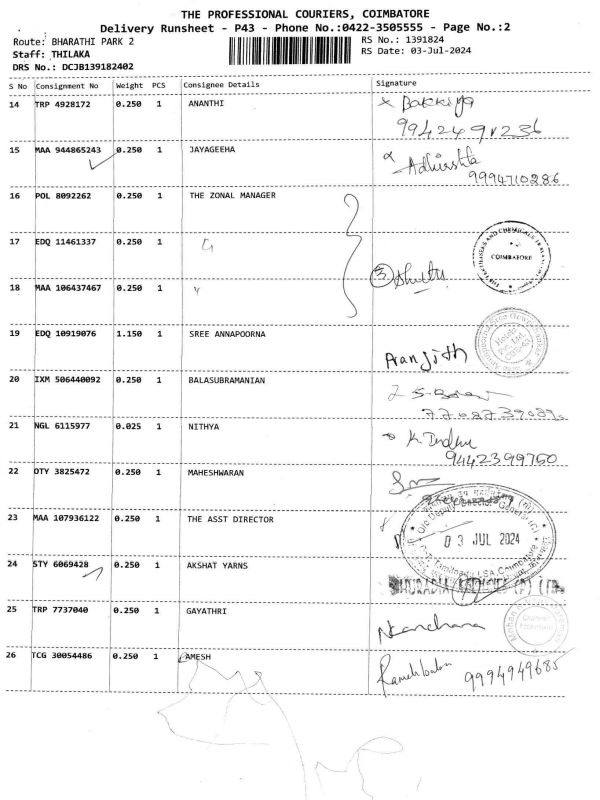 THE PROFESSIONAL COURIERS, COIMBATORE
Delivery Runsheet - P43 - Phone No.:0422-3505555 - Page No.:2
Route: BHARATHI PARK 2
RS No.: 1391824
Staff: THILAKA
RS Date: 03-Jul-2024
DRS No.: DCJB139182402
S No Consignment No Weight PCS Consignee Details Signature
14 TRP 4928172 0.250 1 ANANTHI
9942491236
15 MAA 944865243 0.250 1 JAYAGEEHA
9994710286
16 POL 8092262 0.250 1 THE ZONAL MANAGER
17 EDQ 11461337 0.250 1
COIMBATORE
18 MAA 106437467 0.250 1
3
19 EDQ 10919076 1.150 1 SREE ANNAPOORNA
Aranjith
20 IXM 506440092 0.250 1 BALASUBRAMANIAN
21 NGL 6115977 0.025 1 NITHYA
K. Indhu
9442399760
22 OTY 3825472 0.250 1 MAHESHWARAN
23 MAA 107936122 0.250 1 THE ASST DIRECTOR
03 JUL 2024
24 STY 6069428 0.250 1 AKSHAT YARNS
25 TRP 7737040 0.250 1 GAYATHRI
26 TCG 30054486 0.250 1 RAMESH
9994949685